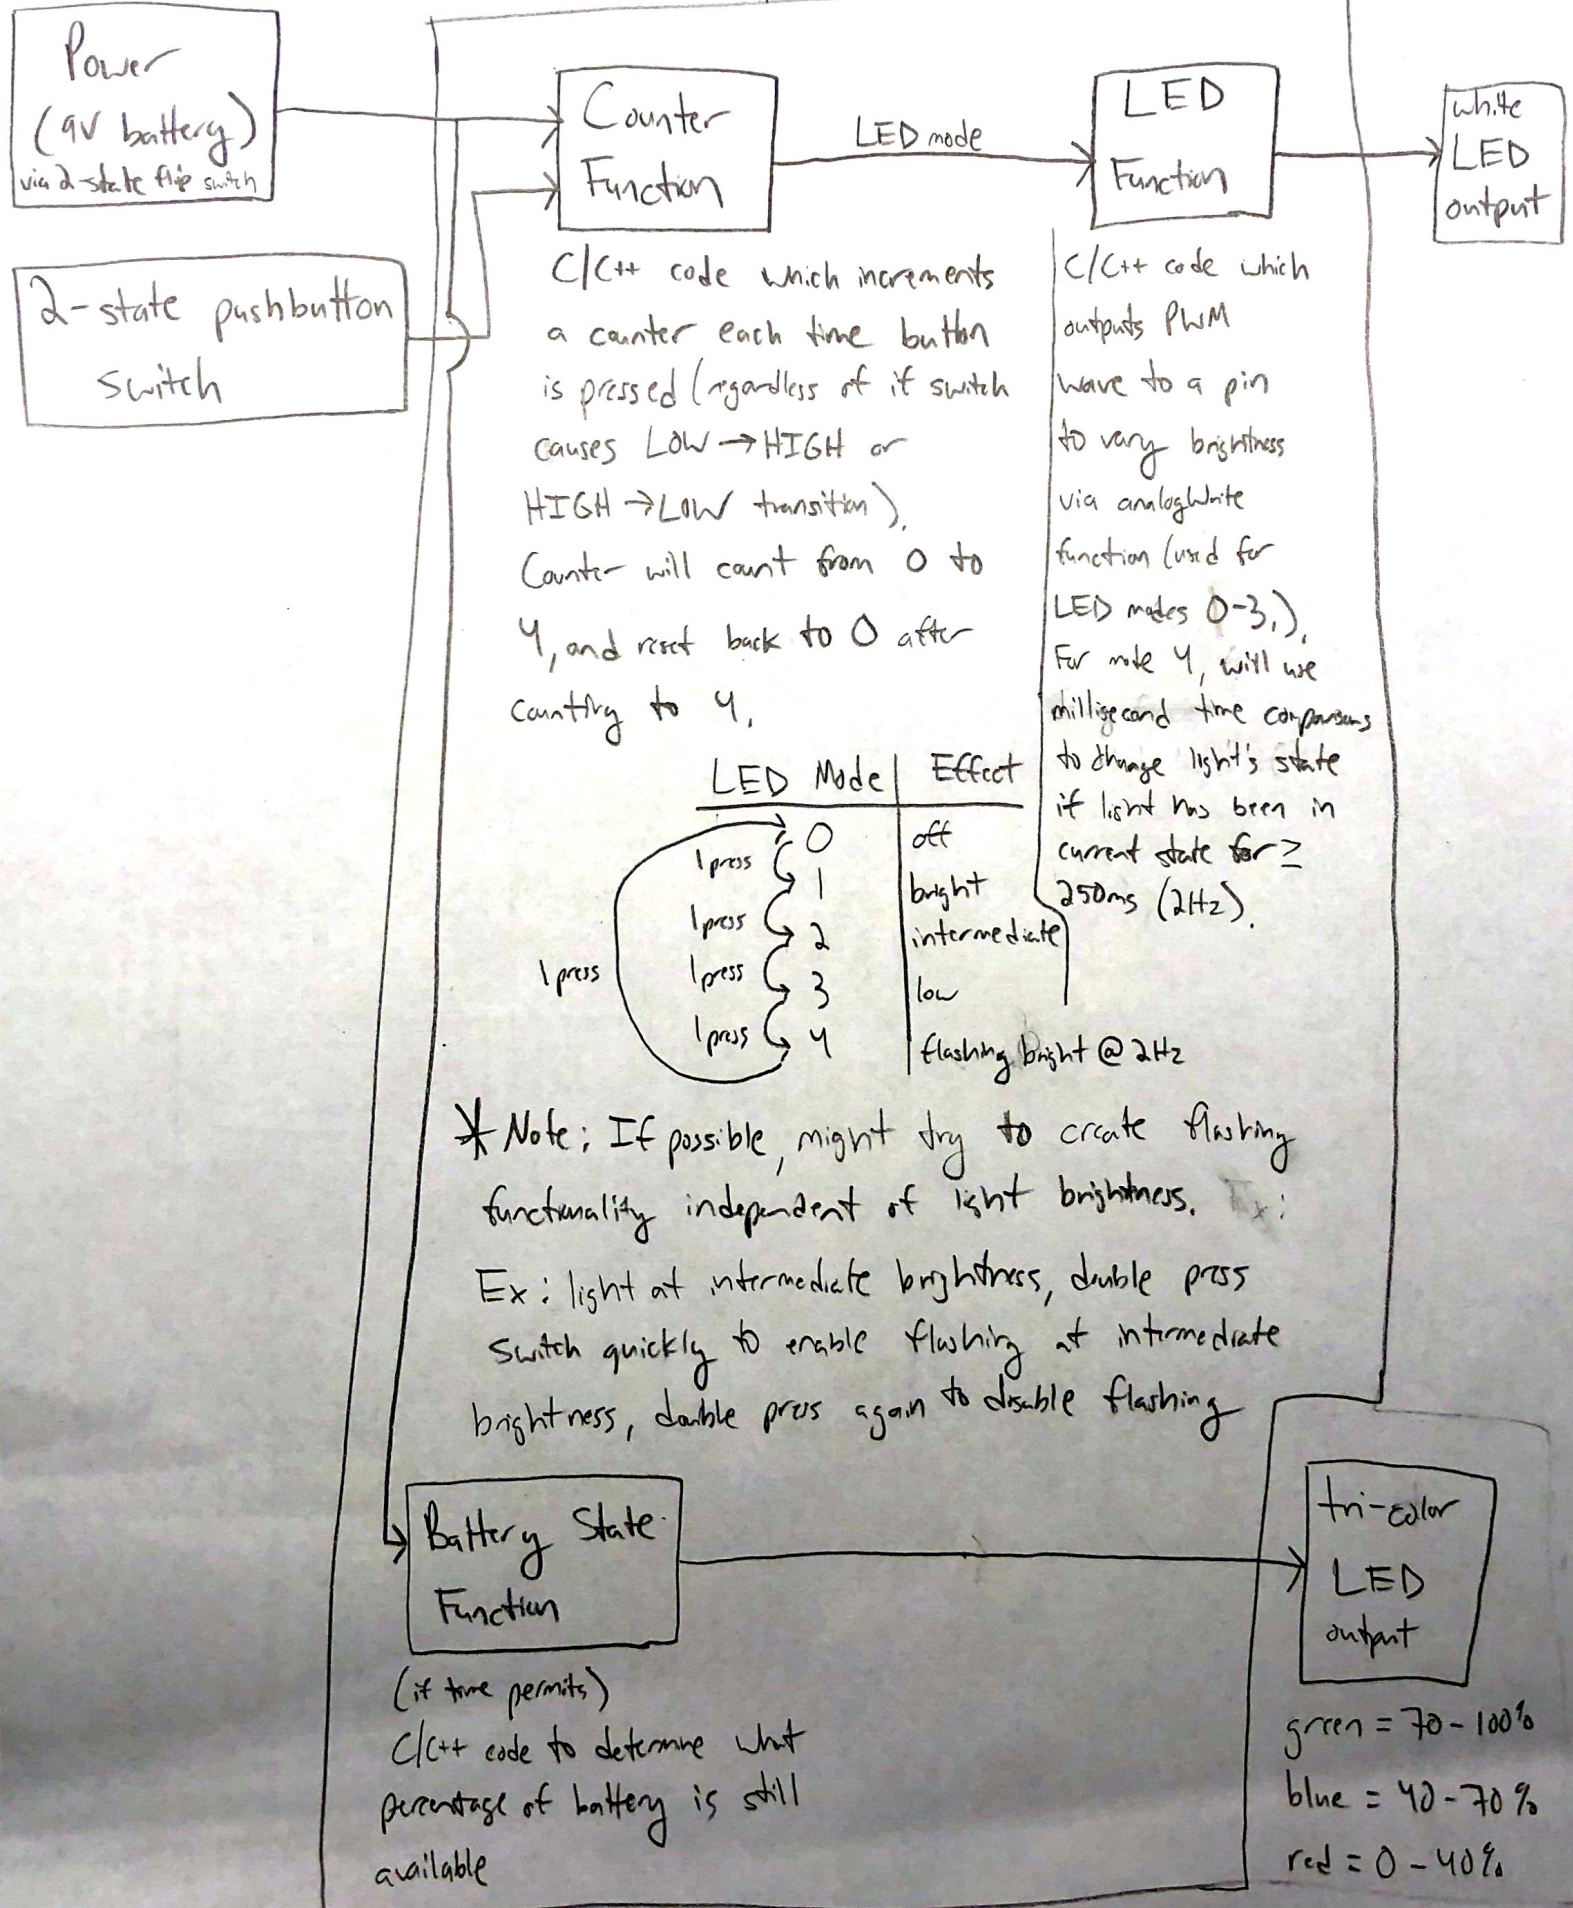 Power
(9V battery)
via 2-state flip switch
2-state pushbutton
switch
Counter
Function
LED mode
LED
Function
white
LED
output
C/C++ code which increments
a counter each time button
is pressed (regardless of if switch
causes LOW → HIGH or
HIGH → LOW transition).
Counter will count from 0 to
4, and reset back to 0 after
counting to 4.
C/C++ code which
outputs PWM
wave to a pin
to vary brightness
via analogWrite
function (used for
LED modes 0-3.).
For mode 4, will use
millisecond time comparisons
to change light's state
if light has been in
current state for ≥
250ms (2Hz).
LED Mode Effect
0 off
1 press
1 bright
1 press
2 intermediate
1 press
1 press
3 low
1 press
4 flashing bright @ 2Hz
* Note: If possible, might try to create flashing
functionality independent of light brightness. Ex:
Ex: light at intermediate brightness, double press
switch quickly to enable flashing at intermediate
brightness, double press again to disable flashing
Battery State
Function
(if time permits)
C/C++ code to determine what
percentage of battery is still
available
tri-color
LED
output
green = 70-100%
blue = 40-70%
red = 0-40%